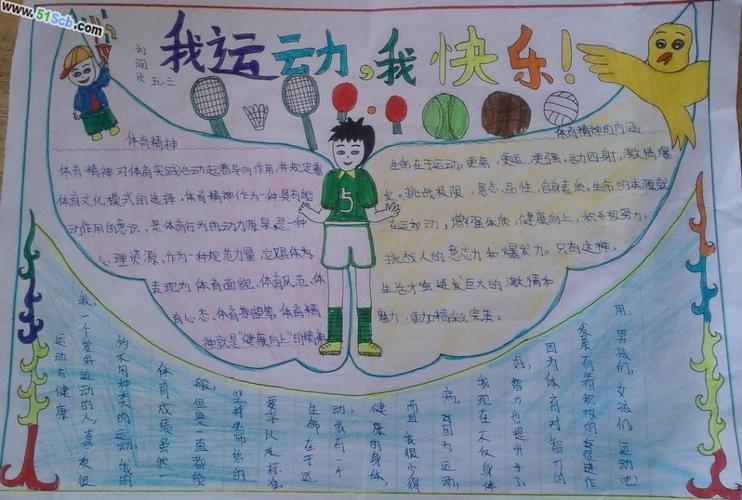 www.51Scb.com
我运动,我快乐!
刘润
五、三
体育精神
体育精神对体育实践活动起着导向作用,并规定着
体育文化模式的选择。体育精神作为一种具有能
动作用的意识,是体育行为的动力源泉,是一种
心理资源。作为一种规范力量,它具体
表现为体育面貌、体育风范、体
育心态、体育 等。体育精
神就是"健康向上"的精神
体育精神的内涵
生命在于运动,更高,更远,更强,活力四射,激情爆
发。挑战极限,意志,品性,自身素质。生命的本源就
在运动,增强体质,健康向上,积极努力。
挑战人的意志力和爆发力。只有这样,
生活才会迸发巨大的激情和
魅力,更加精 完美。
运动与健康
我,一个爱好运动的人,喜欢很
多不同种类的运动,我的
体育成绩虽然一
般但是一直都能
坚持老师给的
要求 及标准。
生命在于运
动,我有一个
健康的身体,
而且我很少得
病。就因为运动,
我现在不仅身体
好,智力也提升了。
因为体育对智力的
发展有着积极的促进作
用。男孩们,女孩们,运动吧!